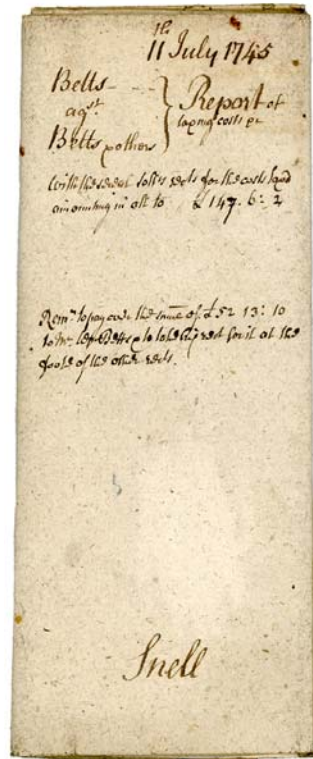 11th July 1745
Betts
agst.
Betts & others
Report of
taxing costs &c
With the severall Sollrs rects for the costs taxed
amounting in all to £ 147. 6: 2
Remr to pay over the sume of £52 13: 10
to Mr Betts & to take his rect for it at the
foote of the other rects.
Snell